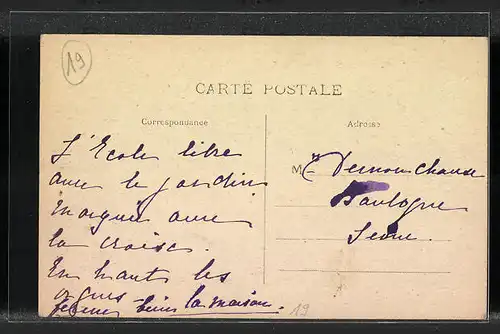 19
CARTE POSTALE
Correspondance
Adresse
L'Ecole libre
avec le jardin
marqué avec
la croix.
En haut les
la maison.
M
Boulogne
Seine.
19